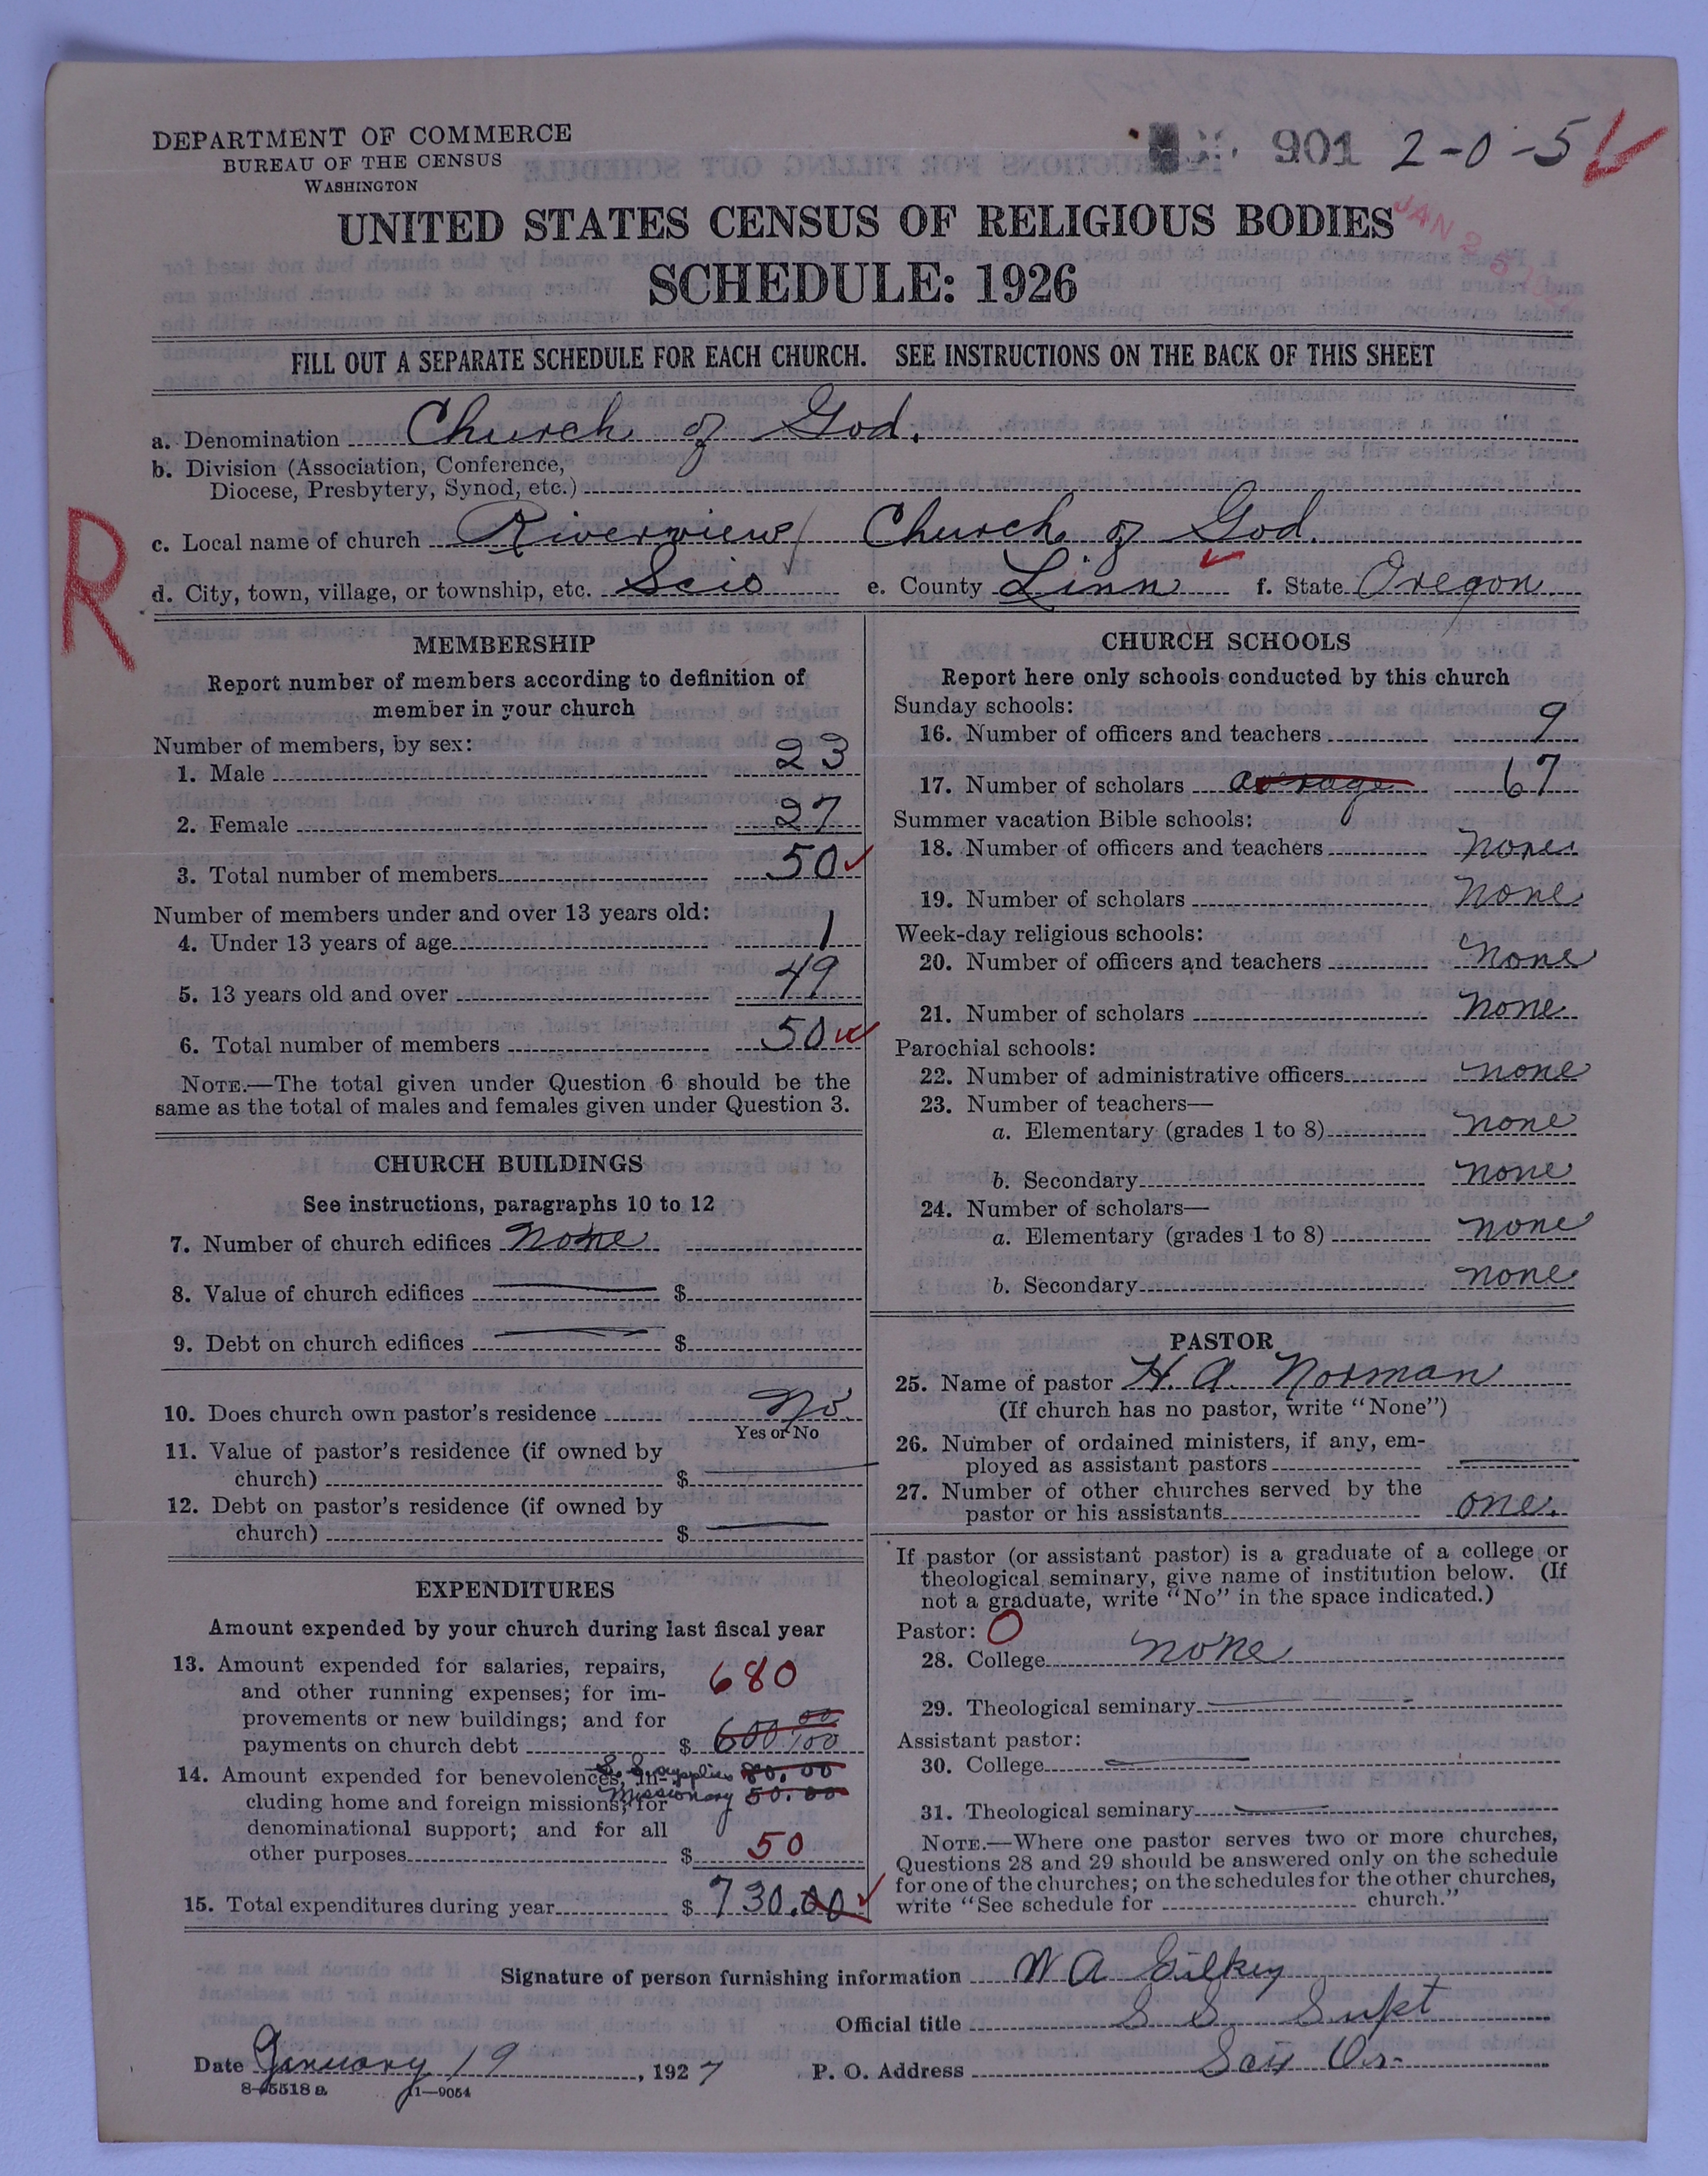 DEPARTMENT OF COMMERCE
BUREAU OF THE CENSUS
WASHINGTON
901 2-0-5
JAN 2
UNITED STATES CENSUS OF RELIGIOUS BODIES
SCHEDULE: 1926
FILL OUT A SEPARATE SCHEDULE FOR EACH CHURCH. SEE INSTRUCTIONS ON THE BACK OF THIS SHEET
a. Denomination Church of God.
b. Division (Association, Conference,
Diocese, Presbytery, Synod, etc.)
R
c. Local name of church Riverview Church of God.
d. City, town, village, or township, etc. Scio e. County Linn f. State Oregon
MEMBERSHIP
Report number of members according to definition of
member in your church
Number of members, by sex:
1. Male 23
2. Female 27
3. Total number of members 50
Number of members under and over 13 years old:
4. Under 13 years of age 1
5. 13 years old and over 49
6. Total number of members 50
NOTE.—The total given under Question 6 should be the
same as the total of males and females given under Question 3.
CHURCH BUILDINGS
See instructions, paragraphs 10 to 12
7. Number of church edifices None
8. Value of church edifices $
9. Debt on church edifices $
10. Does church own pastor's residence No.
Yes or No
11. Value of pastor's residence (if owned by
church) $
12. Debt on pastor's residence (if owned by
church) $
EXPENDITURES
Amount expended by your church during last fiscal year
13. Amount expended for salaries, repairs,
and other running expenses; for im-
provements or new buildings; and for
payments on church debt $ 600 00/100
680
14. Amount expended for benevolences, in-
cluding home and foreign missions; for
denominational support; and for all
other purposes $ 50
S. S. supplies 80.00
Missionary 50.00
15. Total expenditures during year $ 730.00
CHURCH SCHOOLS
Report here only schools conducted by this church
Sunday schools:
16. Number of officers and teachers 9
17. Number of scholars average 67
Summer vacation Bible schools:
18. Number of officers and teachers None
19. Number of scholars None
Week-day religious schools:
20. Number of officers and teachers None
21. Number of scholars None
Parochial schools:
22. Number of administrative officers none
23. Number of teachers—
a. Elementary (grades 1 to 8) none
b. Secondary none
24. Number of scholars—
a. Elementary (grades 1 to 8) none
b. Secondary none
PASTOR
25. Name of pastor H. A. Norman
(If church has no pastor, write "None")
26. Number of ordained ministers, if any, em-
ployed as assistant pastors
27. Number of other churches served by the
pastor or his assistants one.
If pastor (or assistant pastor) is a graduate of a college or
theological seminary, give name of institution below. (If
not a graduate, write "No" in the space indicated.)
Pastor: 0
28. College none
29. Theological seminary
Assistant pastor:
30. College
31. Theological seminary
NOTE.—Where one pastor serves two or more churches,
Questions 28 and 29 should be answered only on the schedule
for one of the churches; on the schedules for the other churches,
write "See schedule for church."
Signature of person furnishing information W A Gilkey
Official title S S Supt
Date January 19, 1927 P. O. Address Scio Or.
8-5518 a 11—9054